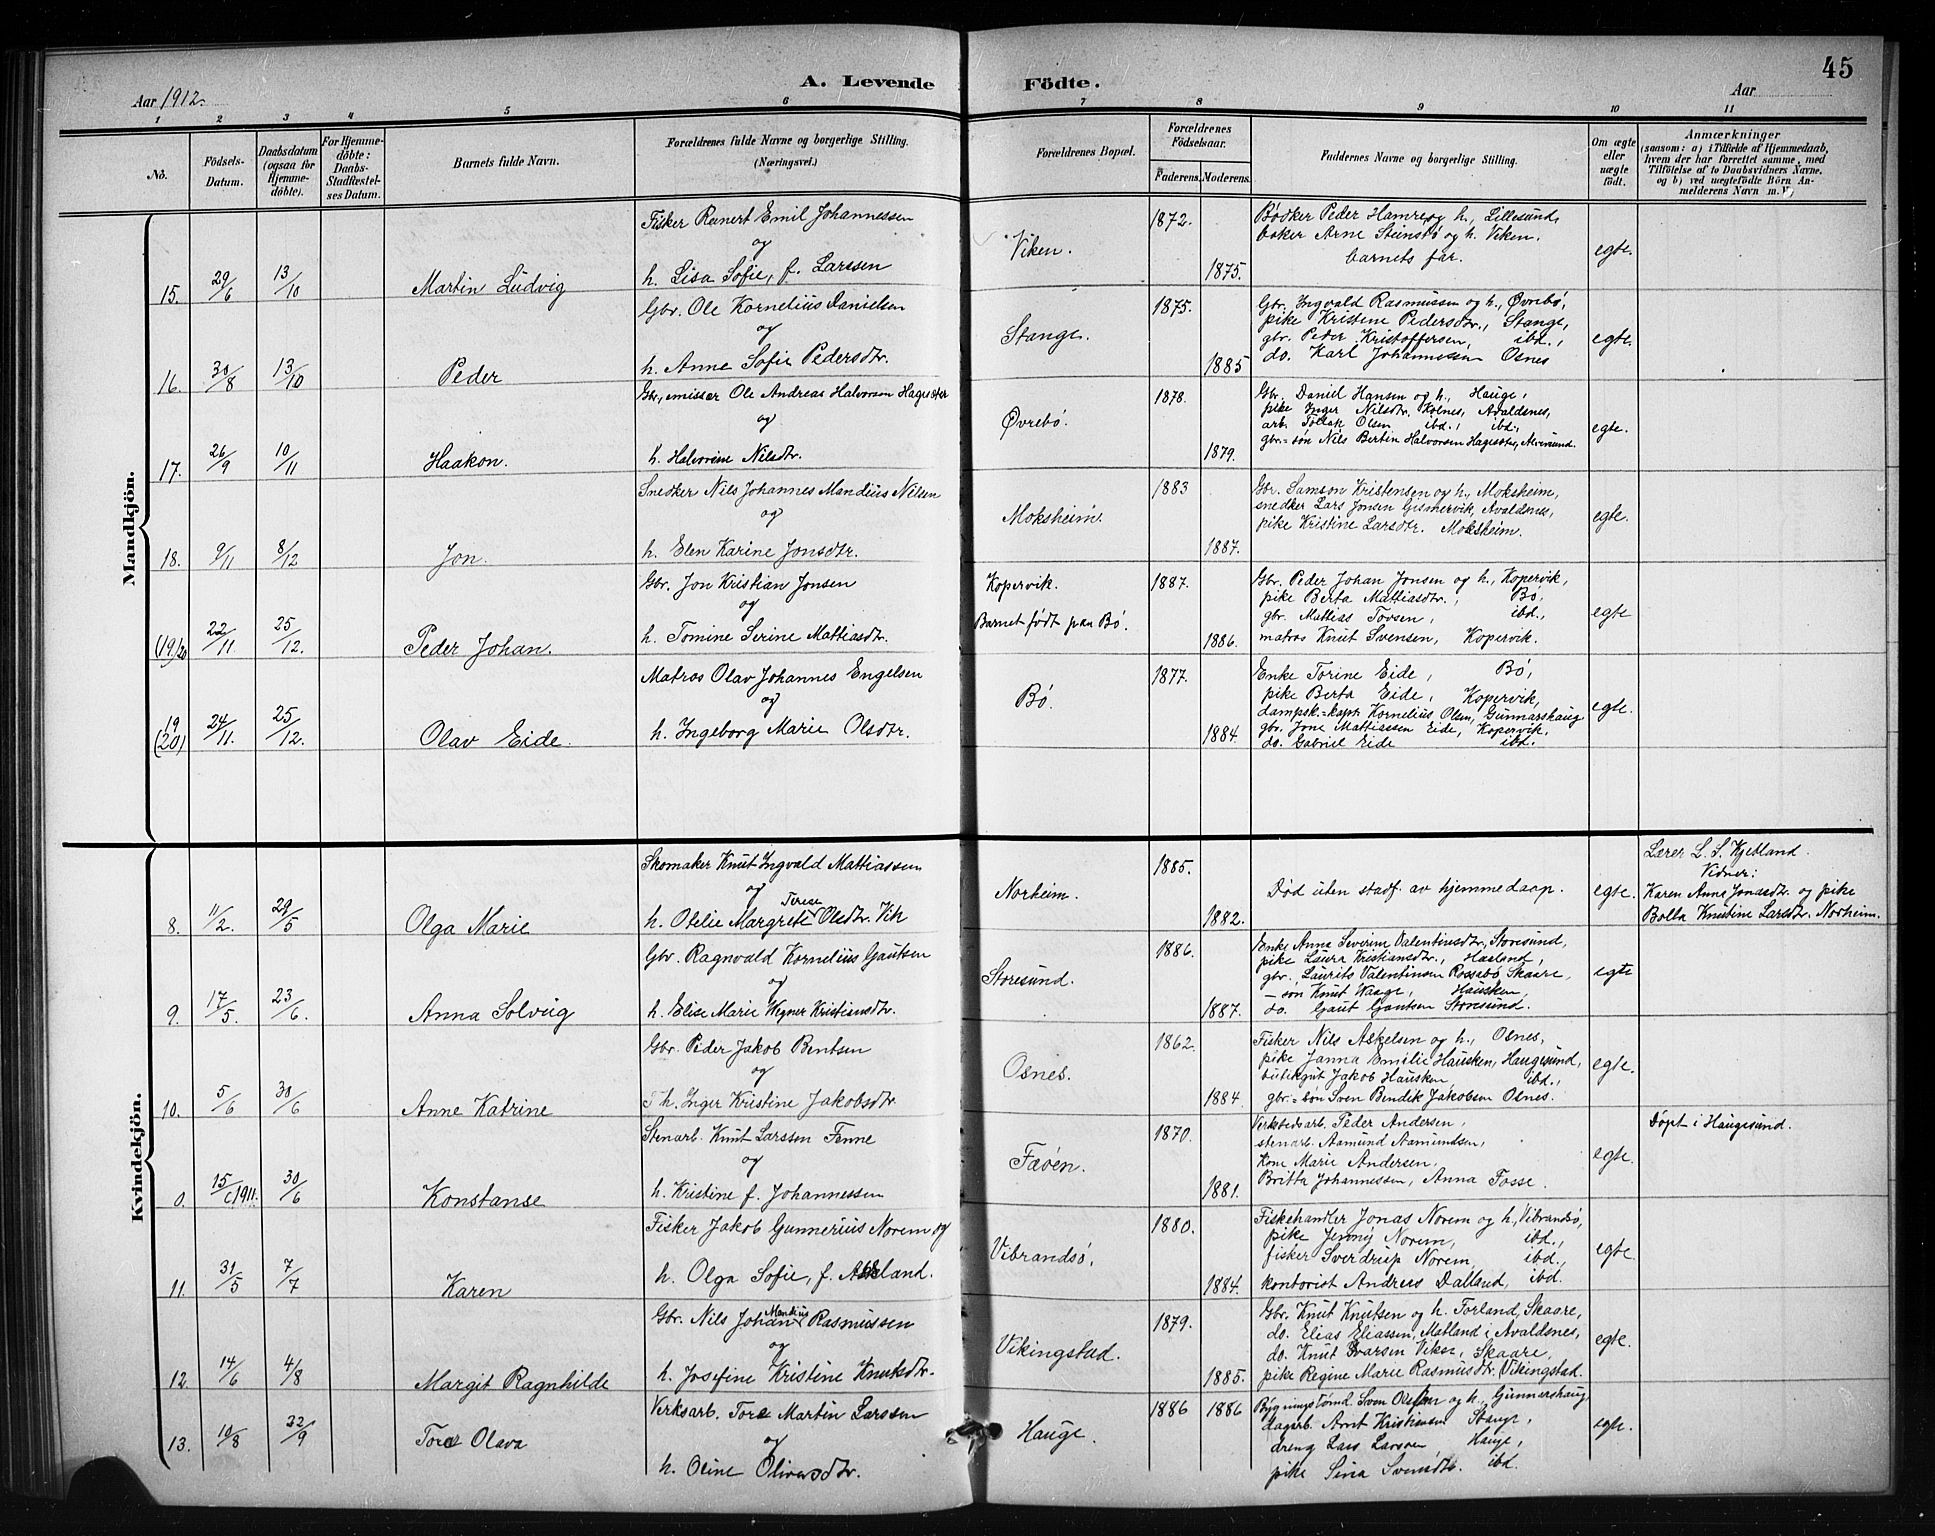 45
A. Levende Födte.
Aar 1912. Aar
1 2 3 4 5 6 7 8 9 10 11
No.
Födsels-Datum.
Daabsdatum (ogsaa for Hjemmedöbte).
For Hjemmedöbte: Daabs-Stadfæstelses Datum.
Barnets fulde Navn.
Forældrenes fulde Navne og borgerlige Stilling. (Næringsvei.)
Forældrenes Bopæl.
Forældrenes Födselsaar.
Faderens. Moderens.
Faddernes Navne og borgerlige Stilling.
Om ægte eller uægte födt.
Anmærkninger
(saasom: a) i Tilfælde af Hjemmedaab, hvem der har forrettet samme, med Tilföielse af to Daabsvidners Navne, og b) ved uægtefödte Börn Anmelderens Navn m. V.)
Mandkjön.
15. 29/6 13/10 Martin Ludvig
Fisker Renert Emil Johannessen
og
h. Lisa Sofie, f. Larssen
Viken. 1872. 1875.
Bödker Peder Hamre og h., Lillesund,
baker Arne Steinsbø og h. Viken.
barnets far.
egte.
16. 30/8 13/10 Peder
Gbr. Ole Kornelius Danielsen
og
h. Anne Sofie Pedersdtr.
Stange. 1875. 1885
Gbr. Ingvald Rasmussen og h., Øvrebø,
pike Kristine Pedersdtr., Stange,
gbr. Peder Kristoffersen, ibd.,
do. Karl Johannessen Osnes
egte.
17. 26/9 10/11 Haakon.
Gbr, emissær Ole Andreas Halvorsen
og
h. Halvorine Nilsdtr.
Øvrebø. 1878. 1879.
Gbr. Daniel Hansen og h., Hauge,
pike Inger Nilsdtr. Kolnes, Avaldsnes,
arb. Tollak Olsen ibd., ibd.,
gbr.=søn Nils Bertin Halvorsen
egte.
18. 9/11 8/12 Jon.
Snedker Nils Johannes Mandius Nilsen
og
h. Elen Karine Jonsdtr.
Moksheim. 1883 1887.
Gbr. Samson Kristensen og h., Moksheim,
snedker Lars Jonsen Gismervik, Avaldsnes,
pike Kristine Larsdtr. Moksheim.
egte.
(19)20 22/11. 25/12. Peder Johan.
Gbr. Jon Kristian Jonsen
og
h. Tomine Serine Mattiasdtr.
Kopervik.
Barnet født paa Bø.
1887. 1886.
Gbr. Peder Johan Jonsen og h., Kopervik,
pike Berta Mattiasdtr., Bø,
gbr. Mathias Tovsen, ibd.,
matros Knut Svensen, Kopervik.
egte
19 (20) 24/11. 25/12. Olav Eide.
Matros Olav Johannes Engelsen
og
h. Ingeborg Marie Olsdtr.
Bø. 1877. 1884.
Enke Torine Eide, Bø,
pike Berta Eide, Kopervik,
dampsk.=kapt. Kornelius Olsen, Gunnarshaug
gbr. Jone Mattiassen Eide, Kopervik,
do. Gabriel Eide ibd.
egte.
Kvindekjön.
8. 11/2. 29/5 Olga Marie
Skomaker Knut Ingvald Mattiassen
og
Terese
h. Otelie Margrete Olsdtr. Vik
Norheim. 1885. 1882.
Død uten stadf. av hjemmedaap.
egte.
Lærer L. S. Kjetland.
Vidner:
Karen Anna Jonasdtr. og pike
Bolla Knutine Larsdtr. Norheim.
9. 17/5. 23/6. Anna Solvig
Gbr. Ragnvald Kornelius Gautsen
og
h. Elise Marie Wegner Kristiansdtr.
Storesund. 1886. 1887.
Enke Anna Severine Valentinsdtr, Storesund,
pike Laura Kristiansdtr., Haaland,
gbr. Laurits Valentinsen Rossabø Skaare,
– søn Knut Waage, Hausken,
do. Gaut Gautsen Storesund.
egte
10. 5/6 30/6 Anne Katrine
Gbr. Peder Jakob Bentsen
og
h. Inger Kristine Jakobsdtr
Osnes. 1862. 1884.
Fisker Nils Askelsen og h., Osnes,
pike Janna Emilie Hausken, Haugesund,
butikgut Jakob Hausken, ibd.,
gbr=søn Sven Bendik Jakobsen Osnes.
egte.
0. 15/6 1911. 30/6 Konstanse
Stenarb. Knut Larssen Fenne
og
h. Kristine f. Johannessen
Fæøen. 1870. 1881.
Verkstedsarb. Peder Andersen,
stenarb. Aamund Aamundsen,
Kone Marie Andersen.
Britta Johannessen, Anna Fosse.
egte.
Døpt i Haugesund.
11. 31/5 7/7 Karen
Fisker Jakob Gunnerius Norem og
h. Olga Sofie, f.
Vibrandsø, 1880. 1884.
Fiskehandler Jonas Norem og h., Vibrandsø,
pike Jenny Norem, ibd.,
fisker Sverdrup Norem, ibd.,
kontorist Andreas Dalland, ibd.
egte.
12. 14/6 4/8 Margit Ragnhilde
Mandius
Gbr. Nils Johan Rasmussen
og
h. Josefine Kristine Knutsdtr.
Vikingstad. 1879. 1885.
Gbr. Knut Knutsen og h. Torland, Skaare,
do. Elias Eliassen, Matland i Avaldsnes,
do. Knut Svarsen Viken, Skaare,
pike Regine Marie Rasmusdtr. Vikingstad.
egte.
13. 10/8 22/9 Tora Olava
Verksarb. Tore Martin Larssen
og
h. Oline Oliversdtr.
Hauge. 1886 1886
Bygningstømd. Sven Olsen og h., Gunnarshaug
dagarb. Arnt Kristiansen Stange,
dreng Lars Larsen, Hauge,
pike Sina Svensdtr. ibd.
egte.